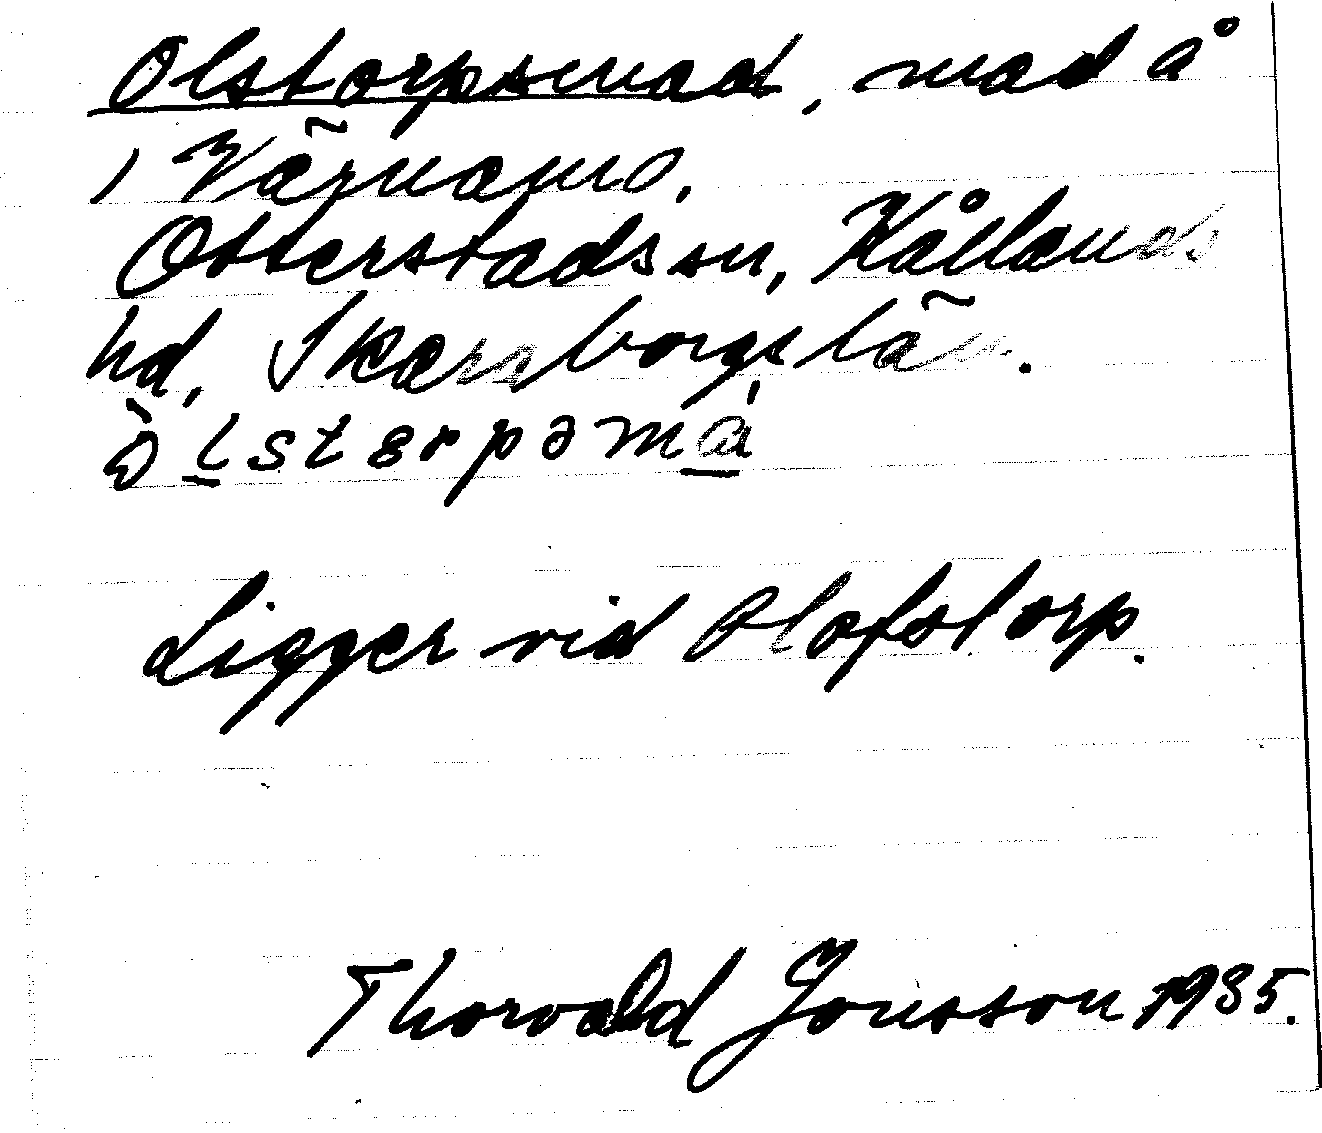 Olstorpsmad, mad å
i Värnamo.
Otterstads sn, Kållands
hd, Skaraborgs län.
Ligger vid Olofstorp.
Thorvald Jonsson 1935.